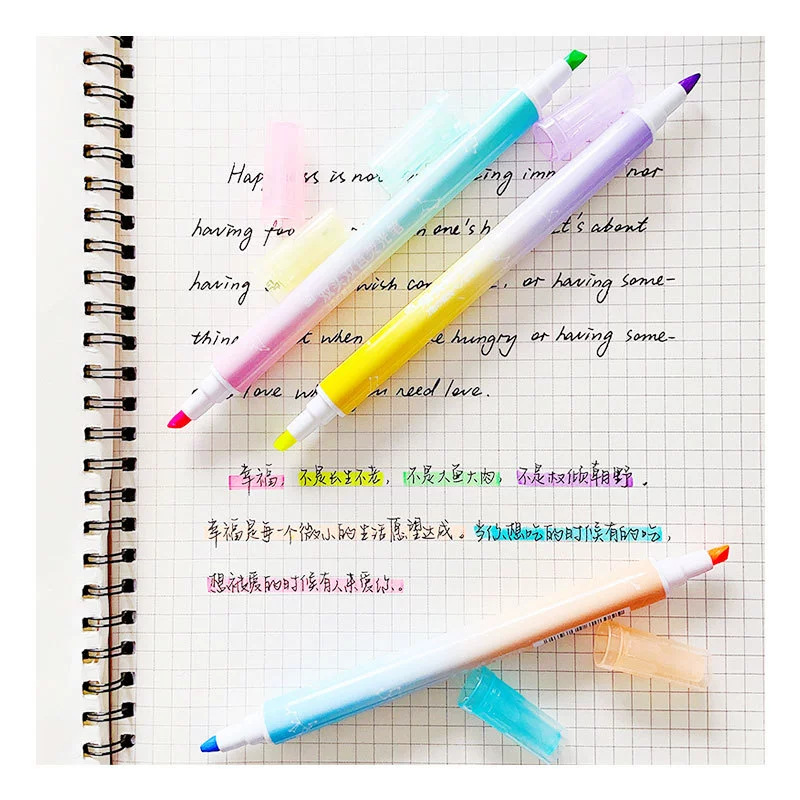 Hap ss is no ing im nor
having foo n one's h t's about
having wish con , or having some-
thin t when e hungry or having some-
love wh u need love.
幸福，不是长生不老，不是大鱼大肉，不是权倾朝野．
幸福是每一个微小的生活愿望达成。当你想吃的时候有的吃，
想被爱的时候有人来爱你。